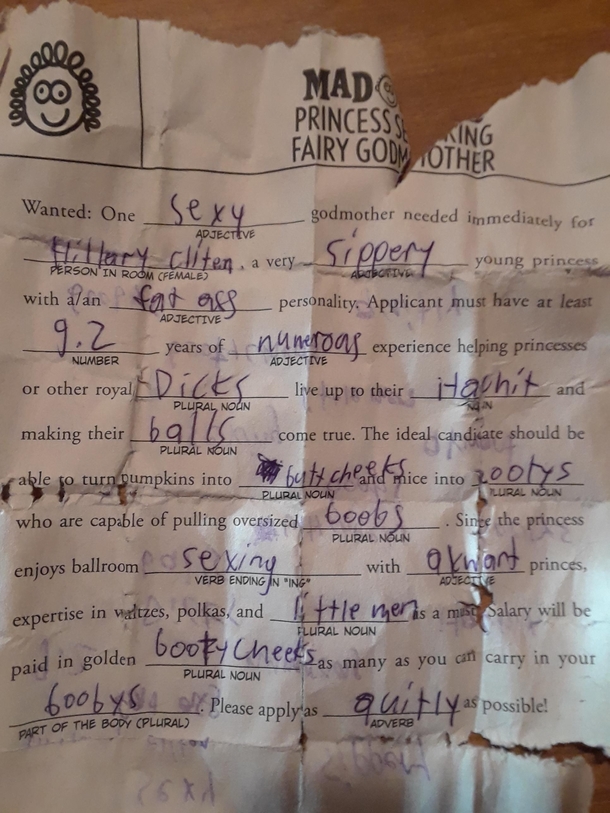 MAD
PRINCESS SE KING
FAIRY GODMOTHER
Wanted: One sexy godmother needed immediately for
ADJECTIVE
Hillary cliten, a very sippery young princess
PERSON IN ROOM (FEMALE) ADJECTIVE
with a/an fat ass personality. Applicant must have at least
ADJECTIVE
9.2 years of numeroas experience helping princesses
NUMBER ADJECTIVE
or other royal Dicks live up to their and
PLURAL NOUN NOUN
making their balls come true. The ideal candidate should be
PLURAL NOUN
able to turn pumpkins into buttcheeks and mice into zootys
PLURAL NOUN PLURAL NOUN
who are capable of pulling oversized boobs. Since the princess
PLURAL NOUN
enjoys ballroom sexing with akwant princes,
VERB ENDING IN "ING" ADJECTIVE
expertise in waltzes, polkas, and little men is a must. Salary will be
PLURAL NOUN
paid in golden bootycheeks as many as you can carry in your
PLURAL NOUN
boobys. Please apply as quitly as possible!
PART OF THE BODY (PLURAL) ADVERB